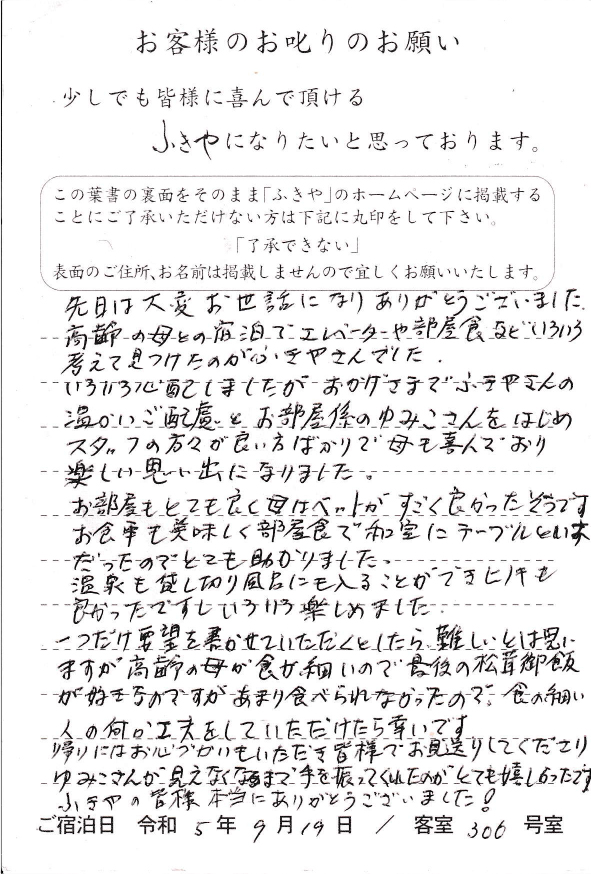 お客様のお叱りのお願い
少しでも皆様に喜んで頂ける
ふきやになりたいと思っております。
この葉書の裏面をそのまま「ふきや」のホームページに掲載する
ことにご了承いただけない方は下記に丸印をして下さい。
「了承できない」
表面のご住所、お名前は掲載しませんので宜しくお願いいたします。
先日は大変お世話になりありがとうございました.
高齢の母との宿泊でエレベーターや部屋食などいろいろ
考えて見つけたのがふきやさんでした.
いろいろ心配しましたがおかげさまでふきやさんの
温かいご配慮とお部屋係のゆみこさんをはじめ
スタッフの方々が良い方ばかりで母も喜んでおり
楽しい思い出になりました。
お部屋もとても良く母はベットがすごく良かったそうです
お食事も美味しく部屋食で和室にテーブルといす
だったのでとても助かりました.
温泉も貸し切り風呂にも入ることができヒノキも
良かったですしいろいろ楽しめました.
一つだけ要望を書かせていただくとしたら、難しいとは思い
ますが高齢の母が食が細いので最後の松茸御飯
が好きなのですがあまり食べられなかったので、食の細い
人の何か工夫をしていただけたら幸いです
帰りにはお心づかいもいただき皆様でお見送りしてくださり
ゆみこさんが見えなくなるまで手を振ってくれたのがとても嬉しかったです
ふきやの皆様本当にありがとうございました!
ご宿泊日 令和 5 年 9 月 19 日 / 客室 306 号室